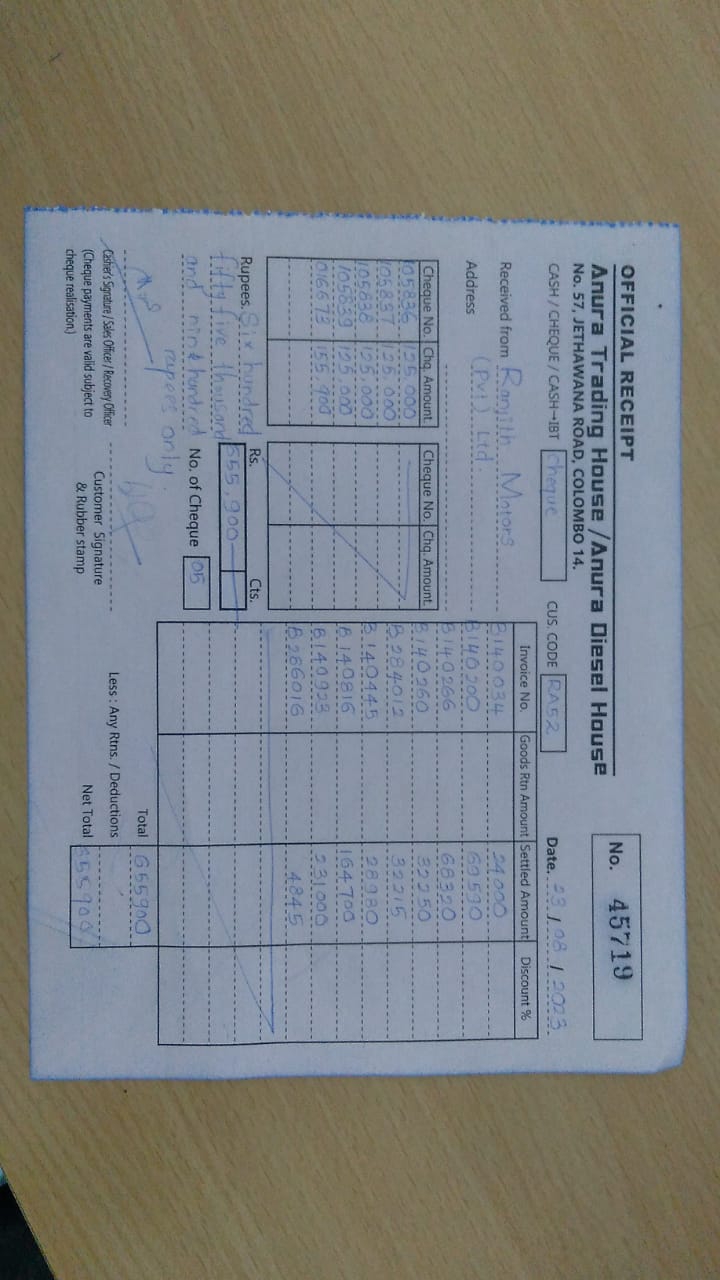 OFFICIAL RECEIPT
Anura Trading House / Anura Diesel House
No. 57, JETHAWANA ROAD, COLOMBO 14.
No. 45719
CASH / CHEQUE / CASH→IBT Cheque CUS. CODE RA52 Date. 23 / 08 / 2023
Received from Ranjith Motors
(Pvt) Ltd
Address
Cheque No. Chq. Amount Cheque No. Chq. Amount
105836 125.000
105837 125.000
105838 125.000
105839 125.000
016673 155.900
Invoice No. Goods Rtn Amount Settled Amount Discount %
B140034 24000
B140200 69590
B140266 68320
B140260 32250
B284012 32215
B140445 28980
B140816 164700
B140923 231000
B286016 4845
Rupees. Six hundred
fifty five thousand
and nine hundred
rupees only
Rs. Cts.
655,900
No. of Cheque 05
Total 655900
Less : Any Rtns. / Deductions
Net Total 655900
Casher's Signature / Sales Officer / Recovery Officer
(Cheque payments are valid subject to
cheque realisation)
Customer Signature
& Rubber stamp